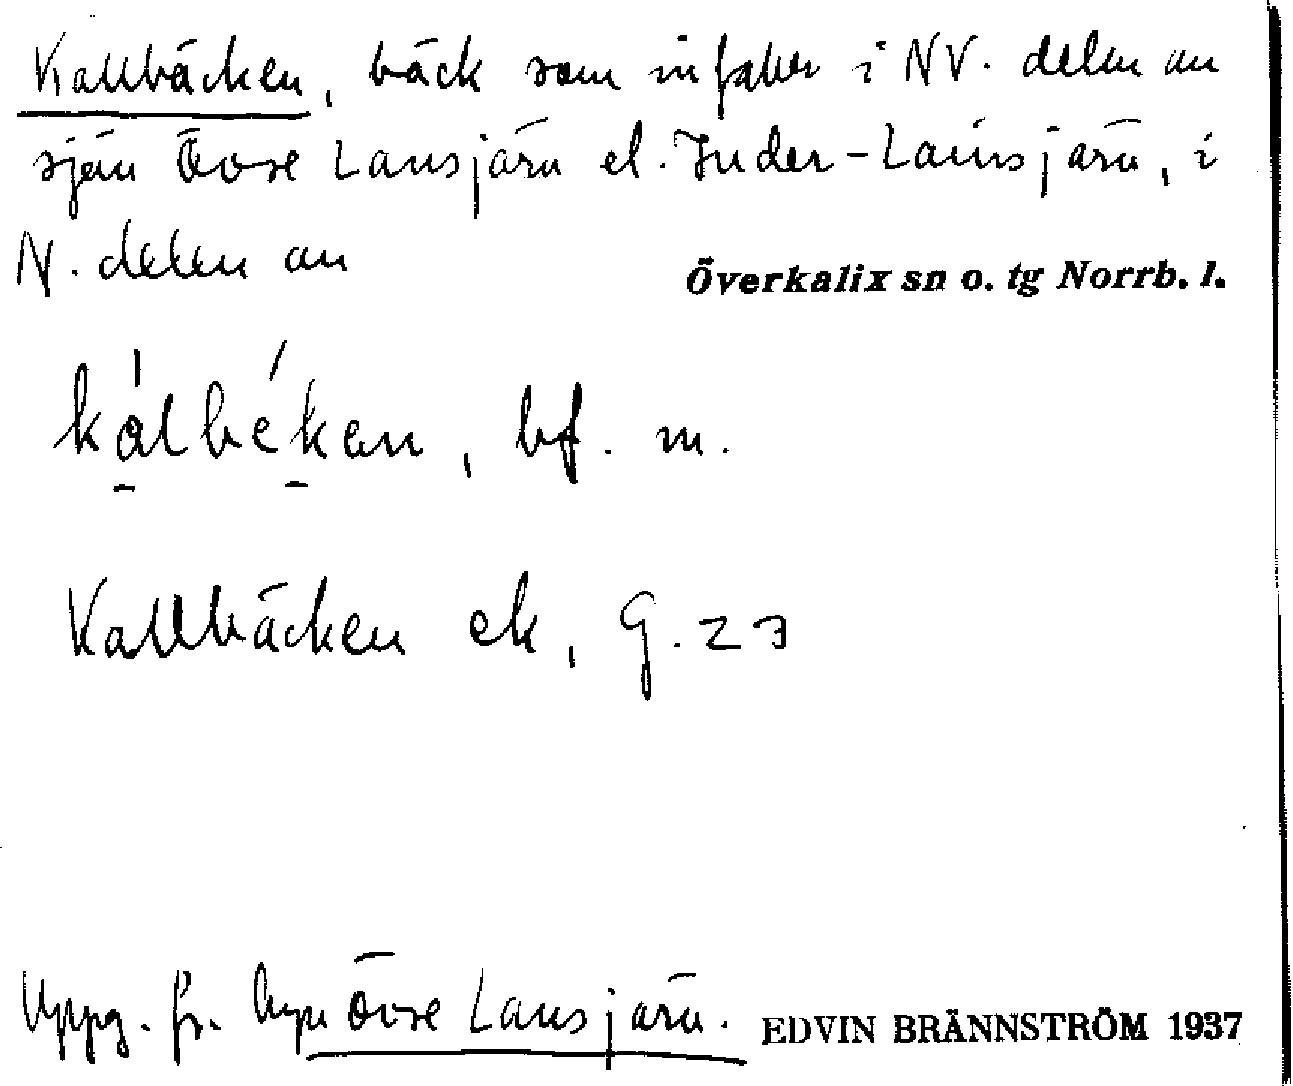 Kallbäcken, bäck som infaller i NV. delen av
sjön Övre Lansjärv el. Inder-Lansjärv, i
N. delen av
Överkalix sn o. tg Norrb. l.
kálbékan, bf. m.
Kallbäcken ek, G. 27
Uppg. fr. byn Övre Lansjärv.
EDVIN BRÄNNSTRÖM 1937